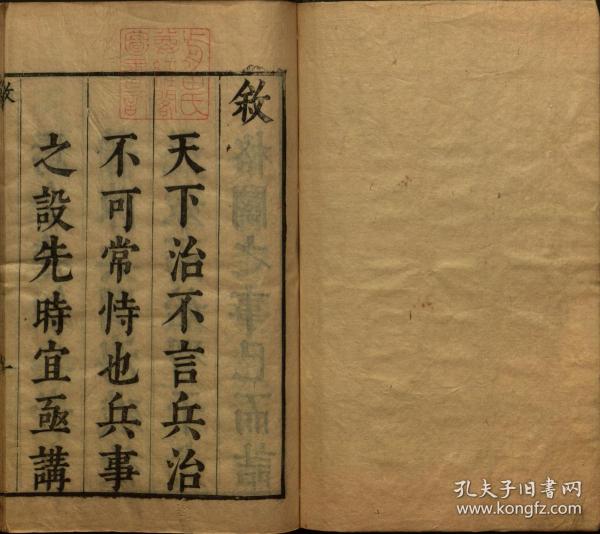 敘
天下治不言兵治
不可常恃也兵事
之設先時宜亟講
孔夫子旧书网
www.kongfz.com